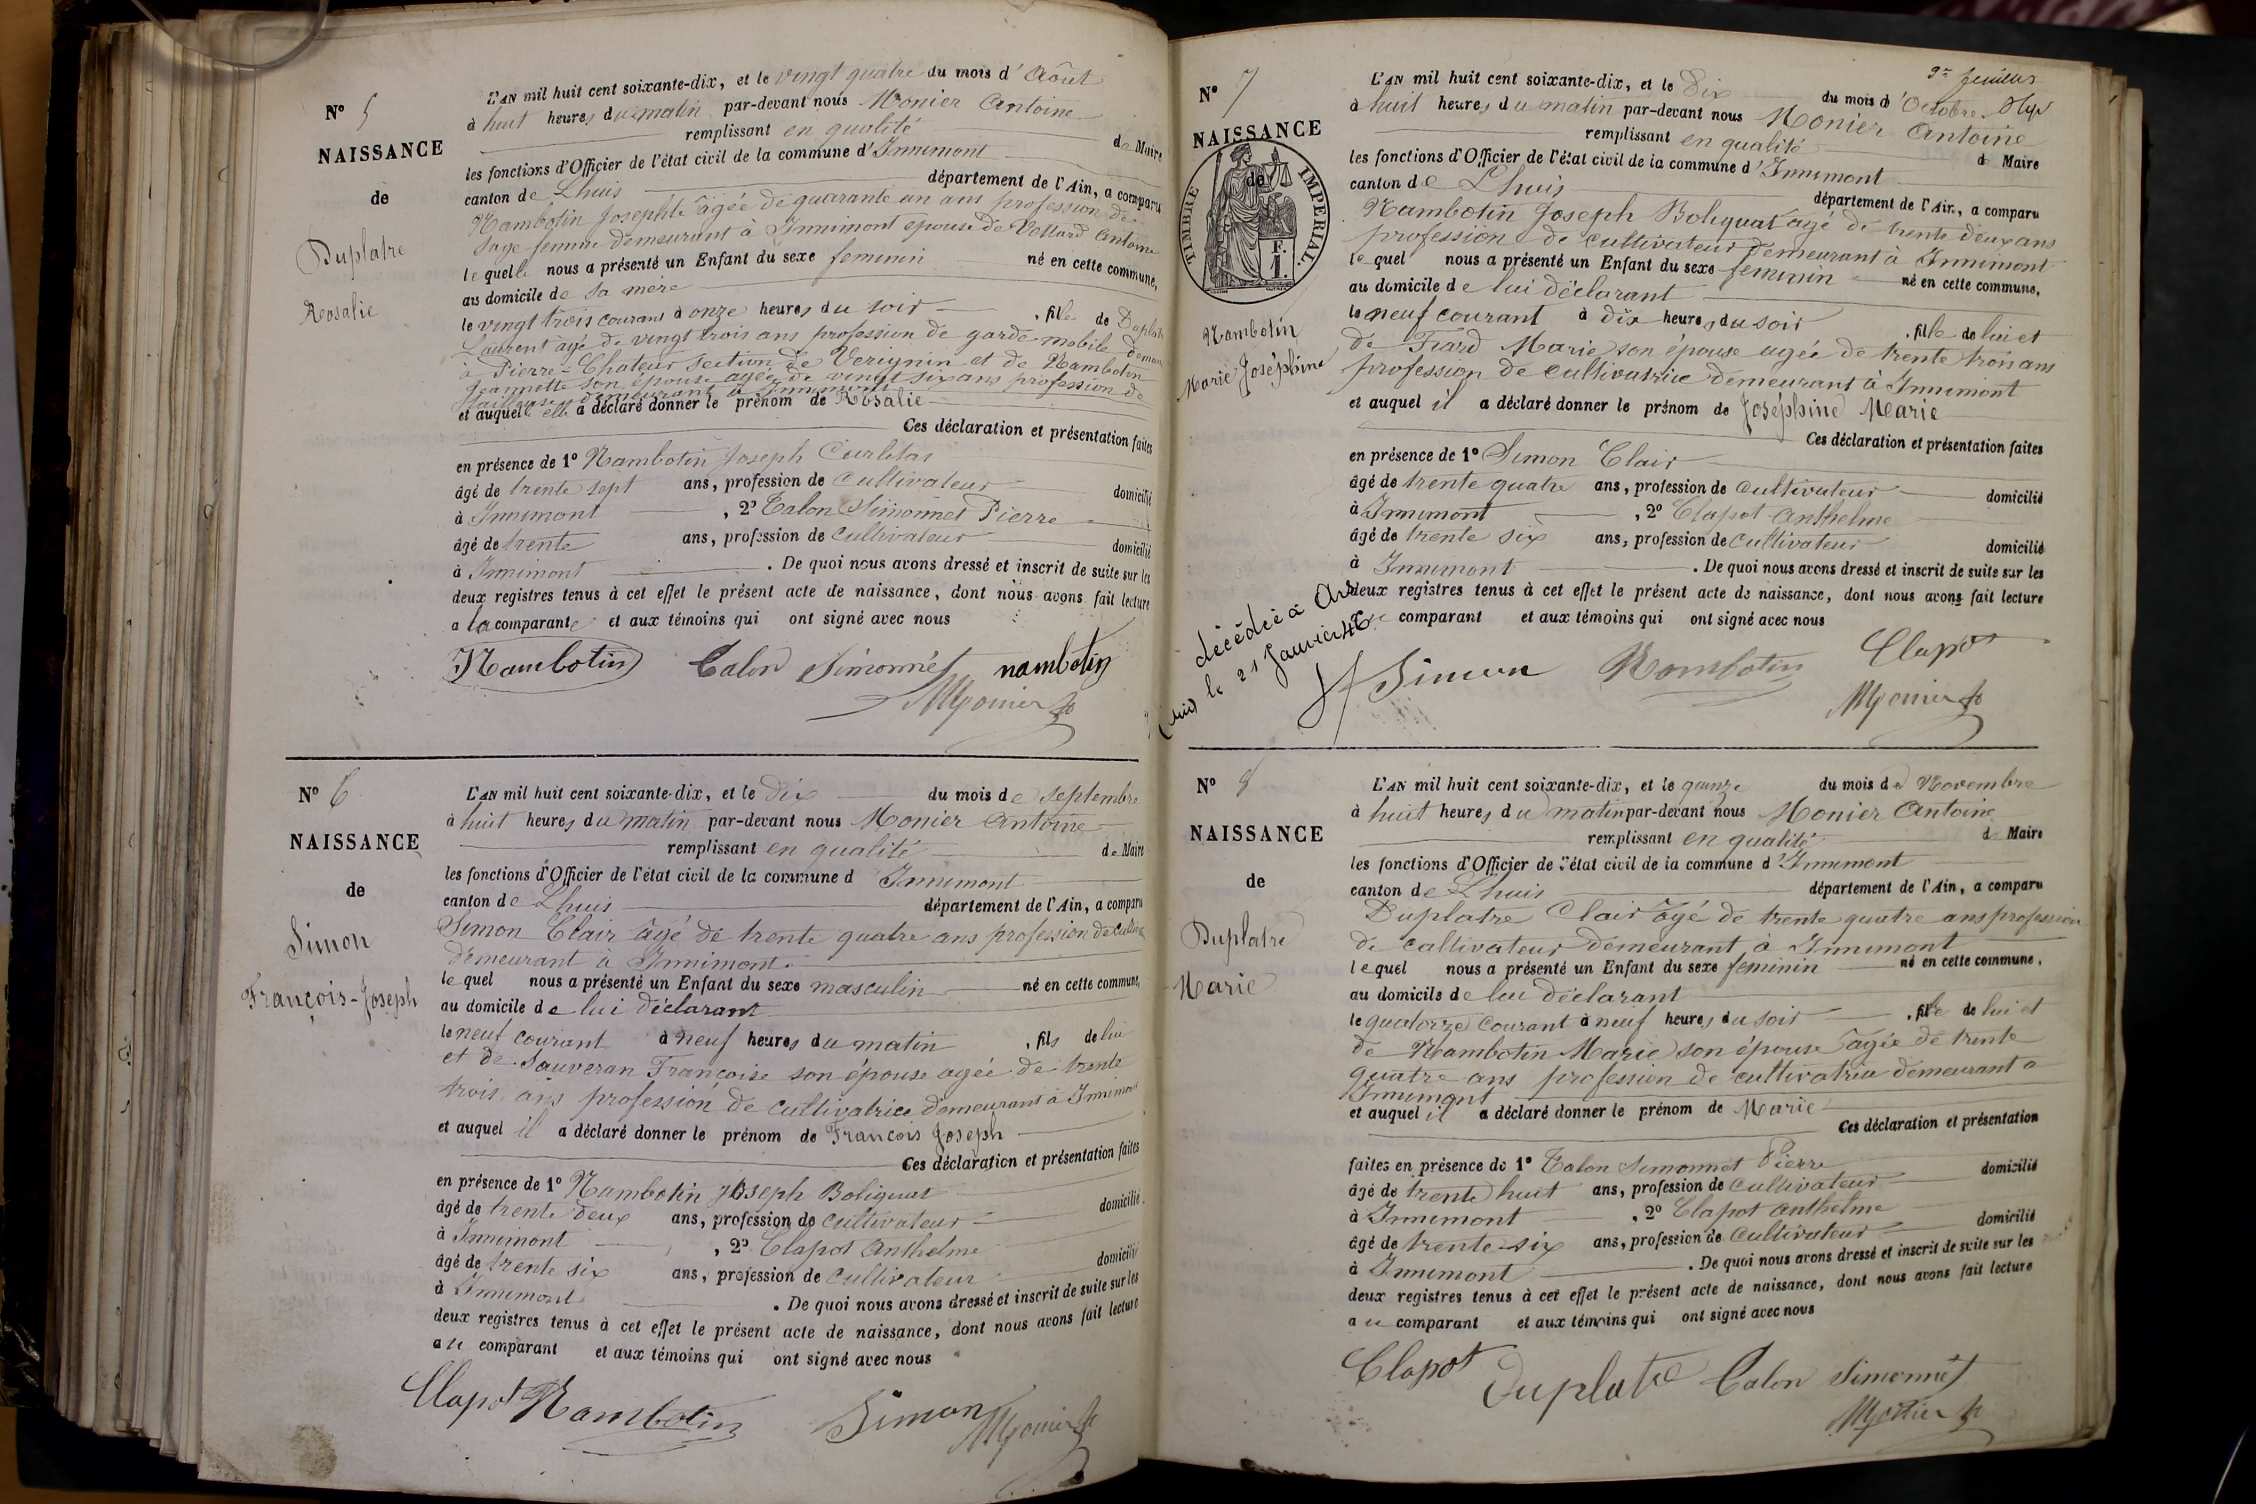 N° 5
NAISSANCE
de
Duplatre
Rosalie
L'AN mil huit cent soixante-dix, et le vingt quatre du mois d'Août
à huit heures du matin par-devant nous Monier Antoine
remplissant en qualité de Maire
les fonctions d'Officier de l'état civil de la commune d'Innimont
canton de Lhuis département de l'Ain, a comparu
Nambotin Josephte âgée de quarante un ans profession de
sage femme demeurant à Innimont épouse de Vollard Antoine
lequelle nous a présenté un Enfant du sexe feminin né en cette commune,
au domicile de sa mère
le vingt trois courant à onze heures du soir, fille de Duplatre
Laurent agé de vingt trois ans profession de garde mobile
à Pierre-Chatel section de Virignin et de Nambotin
Jeannette son épouse agée de vingt six ans profession de
demeurant à Innimont
et auquel elle a déclaré donner le prénom de Rosalie
Ces déclaration et présentation faites
en présence de 1° Nambotin Joseph
âgé de trente sept ans, profession de cultivateur domicilié
à Innimont, 2° Calon Simonnet Pierre
âgé de trente ans, profession de cultivateur domicilié
à Innimont. De quoi nous avons dressé et inscrit de suite sur les
deux registres tenus à cet effet le présent acte de naissance, dont nous avons fait lecture
a la comparante et aux témoins qui ont signé avec nous
Nambotin Calon Simonnet nambotin
Monier
N° 6
NAISSANCE
de
Simon
François-Joseph
L'AN mil huit cent soixante-dix, et le dix du mois de septembre
à huit heures du matin par-devant nous Monier Antoine
remplissant en qualité de Maire
les fonctions d'Officier de l'état civil de la commune d Innimont
canton de Lhuis département de l'Ain, a comparu
Simon Clair âgé de trente quatre ans profession de
demeurant à Innimont
lequel nous a présenté un Enfant du sexe masculin né en cette commune,
au domicile de lui déclarant
le neuf courant à neuf heures du matin, fils de lui
et de Sauveran Françoise son épouse agée de trente
trois ans profession de cultivatrice demeurant à Innimont
et auquel il a déclaré donner le prénom de François Joseph
Ces déclaration et présentation faites
en présence de 1° Nambotin Joseph Boliquat
âgé de trente deux ans, profession de cultivateur domicilié
à Innimont, 2° Clapot Anthelme
âgé de trente six ans, profession de cultivateur domicilié
à Innimont. De quoi nous avons dressé et inscrit de suite sur les
deux registres tenus à cet effet le présent acte de naissance, dont nous avons fait lecture
au comparant et aux témoins qui ont signé avec nous
Clapot Nambotin Simon Monier
N° 7
NAISSANCE
de
TIMBRE IMPERIAL.
F.
1.
Nambotin
Marie Joséphine
L'AN mil huit cent soixante-dix, et le dix du mois d'Octobre
à huit heures du matin par-devant nous Monier Antoine
remplissant en qualité de Maire
les fonctions d'Officier de l'état civil de la commune d'Innimont
canton de Lhuis département de l'Ain, a comparu
Nambotin Joseph Boliquat agé de trente deux ans
profession de cultivateur demeurant à Innimont
lequel nous a présenté un Enfant du sexe feminin né en cette commune,
au domicile de lui déclarant
le neuf courant à dix heures du soir, fille de lui et
de Tiard Marie son épouse agée de trente trois ans
profession de cultivatrice demeurant à Innimont
et auquel il a déclaré donner le prénom de Joséphine Marie
Ces déclaration et présentation faites
en présence de 1° Simon Clair
âgé de trente quatre ans, profession de cultivateur domicilié
à Innimont, 2° Clapot Anthelme
âgé de trente six ans, profession de cultivateur domicilié
à Innimont. De quoi nous avons dressé et inscrit de suite sur les
deux registres tenus à cet effet le présent acte de naissance, dont nous avons fait lecture
comparant et aux témoins qui ont signé avec nous
décédée à
le 21 Janvier
Simon Nambotin Clapot
Monier
N° 8
NAISSANCE
de
Duplatre
Marie
L'AN mil huit cent soixante-dix, et le quinze du mois de Novembre
à huit heures du matin par-devant nous Monier Antoine
remplissant en qualité de Maire
les fonctions d'Officier de l'état civil de la commune d'Innimont
canton de Lhuis département de l'Ain, a comparu
Duplatre Clair âgé de trente quatre ans profession
de cultivateur demeurant à Innimont
lequel nous a présenté un Enfant du sexe feminin né en cette commune,
au domicile de lui déclarant
le quatorze courant à neuf heures du soir, fille de lui et
de Nambotin Marie son épouse agée de trente
quatre ans profession de cultivatrice demeurant a
Innimont
et auquel il a déclaré donner le prénom de Marie
Ces déclaration et présentation
faites en présence de 1° Calon Simonnet Pierre domicilié
âgé de trente huit ans, profession de cultivateur
à Innimont, 2° Clapot Anthelme
âgé de trente-six ans, profession de cultivateur domicilié
à Innimont. De quoi nous avons dressé et inscrit de suite sur les
deux registres tenus à cet effet le présent acte de naissance, dont nous avons fait lecture
au comparant et aux témoins qui ont signé avec nous
Clapot Duplatre Calon Simonnet
Monier